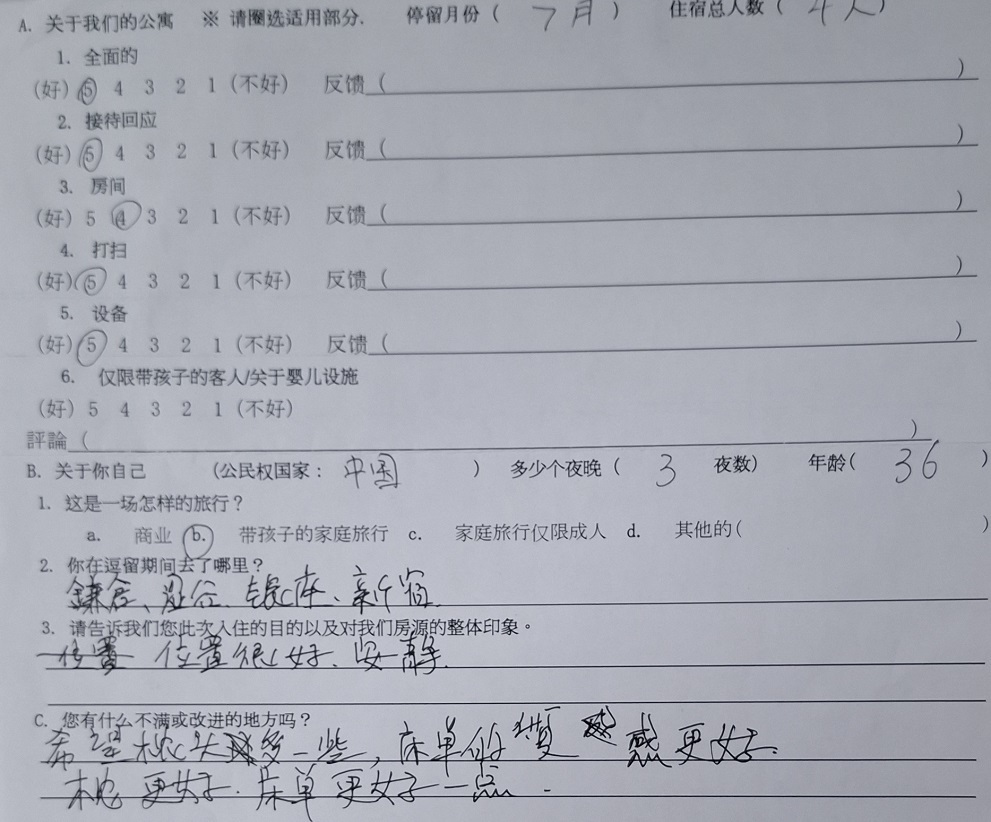 A. 关于我们的公寓 ※ 请圈选适用部分. 停留月份 ( 7月 ) 住宿总人数 ( 4人 )
1. 全面的
(好) 5 4 3 2 1 (不好) 反馈 ( )
2. 接待回应
(好) 5 4 3 2 1 (不好) 反馈 ( )
3. 房间
(好) 5 4 3 2 1 (不好) 反馈 ( )
4. 打扫
(好) 5 4 3 2 1 (不好) 反馈 ( )
5. 设备
(好) 5 4 3 2 1 (不好) 反馈 ( )
6. 仅限带孩子的客人/关于婴儿设施
(好) 5 4 3 2 1 (不好)
評論 ( )
B. 关于你自己 (公民权国家: 中国 ) 多少个夜晚 ( 3 夜数) 年龄( 36 )
1. 这是一场怎样的旅行?
a. 商业 b. 带孩子的家庭旅行 c. 家庭旅行仅限成人 d. 其他的( )
2. 你在逗留期间去了哪里?
鎌倉、涩谷、银座、新宿.
3. 请告诉我们您此次入住的目的以及对我们房源的整体印象。
位置 位置很好、安静.
C. 您有什么不满或改进的地方吗?
希望枕头多一些, 床单的 感更好.
枕 更好. 床单更好一点.